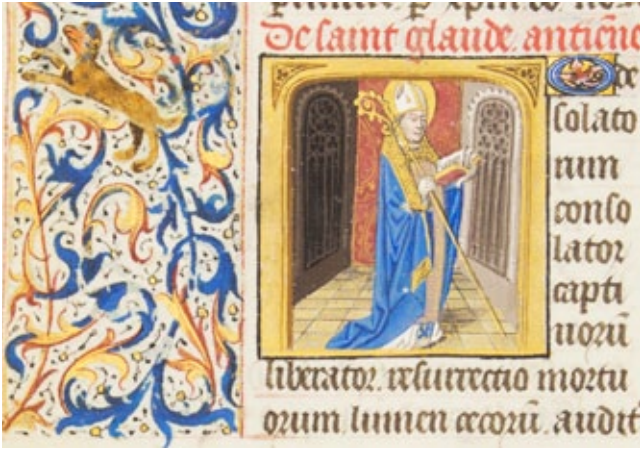 De saint glaude. antiene
O de
solato
rum
conso
lator
capti
uorū
liberator. resurrectio mortu
orum. lumen cecorū. audit